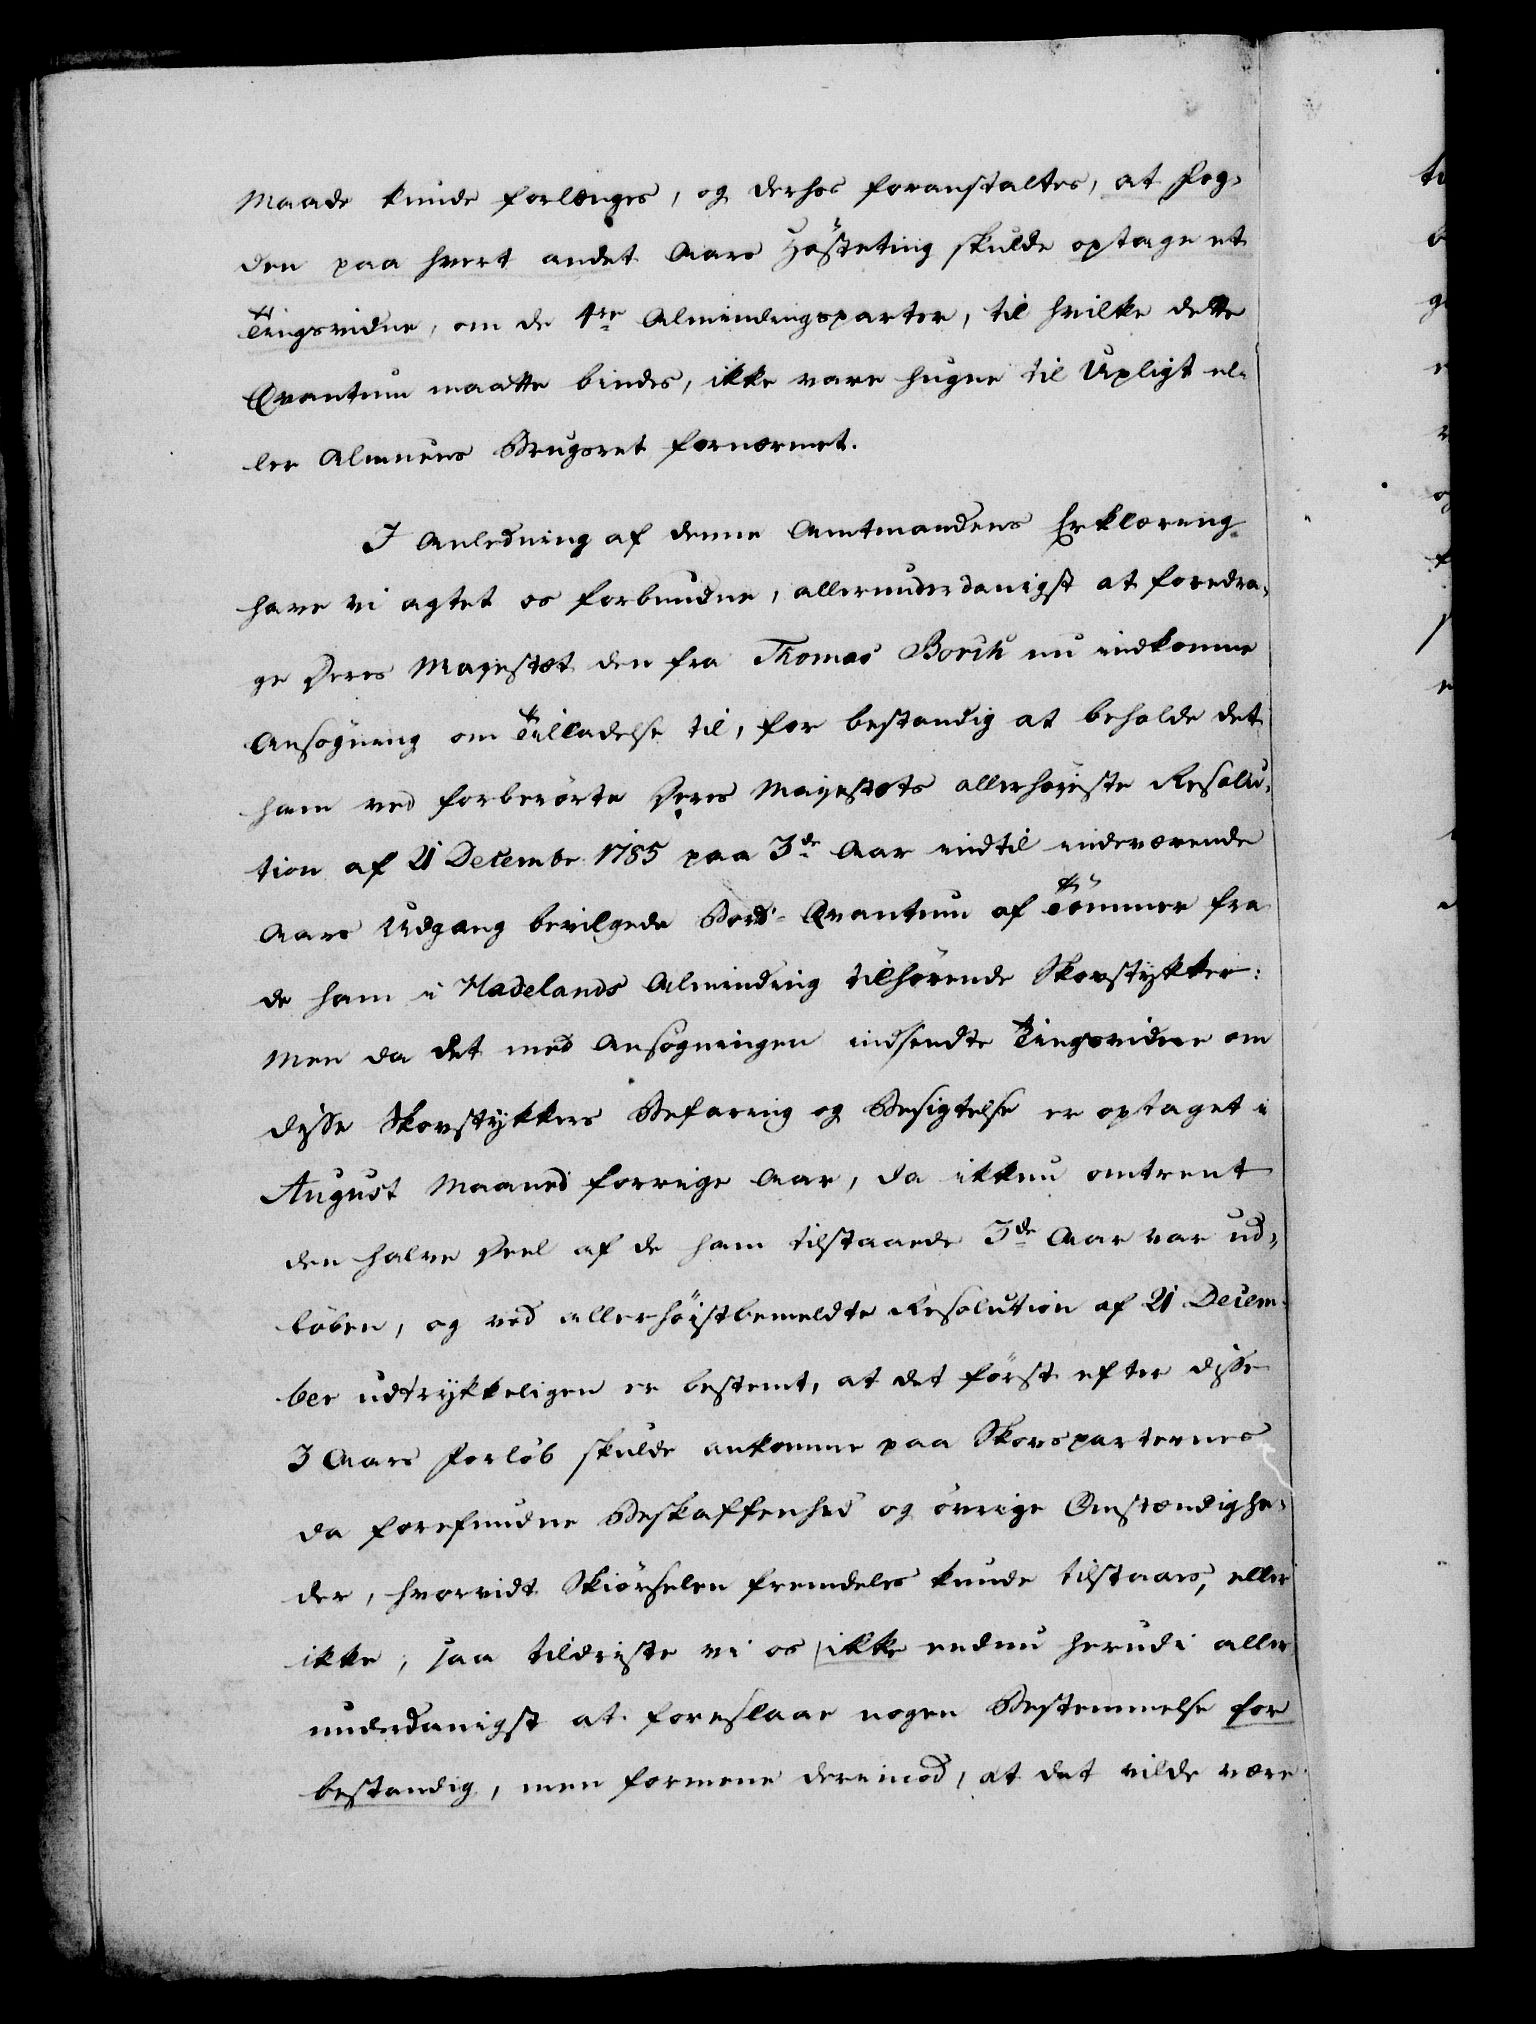 Maade kunde forlænges, og derhos foranstaltes, at Fog-
den paa hvert andet Aars Høsteting skulde optage et
Tingsvidne, om de 4re Almindingsparter, til hvilke dette
Qvantum maatte bindes, ikke vare hugne til Upligt el-
ler Almuens Brugsret fornærmet.
I Anledning af denne Amtmandens Erklæring
have vi agtet os forbundne, allerunderdanigst at foredra-
ge Deres Majestæt den fra Thomas Borch nu indkomne
Ansøgning om Tilladelse til, for bestandig at beholde det
ham ved forberørte Deres Majestæts allerhøieste Resolu-
tion af 21 Decembr 1785 paa 3de Aar indtil indeværende
Aars Udgang bevilgede Bord-Qvantum af Tömmer fra
de ham i Hadelands Alminding tilhørende Skovstykker:
Men da det med Ansøgningen indsendte Tingsvidne om
disse Skovstykkers Befaring og Besigtelse er optaget i
August Maaned forrige Aar, da ikkun omtrent
den halve Deel af de ham tilstaaede 3de Aar var ud-
løben, og ved allerhøistbemeldte Resolution af 21 Decem-
ber udtrykkeligen er bestemt, at det først efter disse
3 Aars Forløb skulde ankomme paa Skovparternes
da forefundne Beskaffenhed og øvrige Omstændighe-
der, hvorvidt Skiørselen fremdeles kunde tilstaaes, eller
ikke, saa tildriste vi os ikke endnu herudi aller
underdanigst at foreslaae nogen Bestemmelse for
bestandig, men formene derimod, at det vilde være